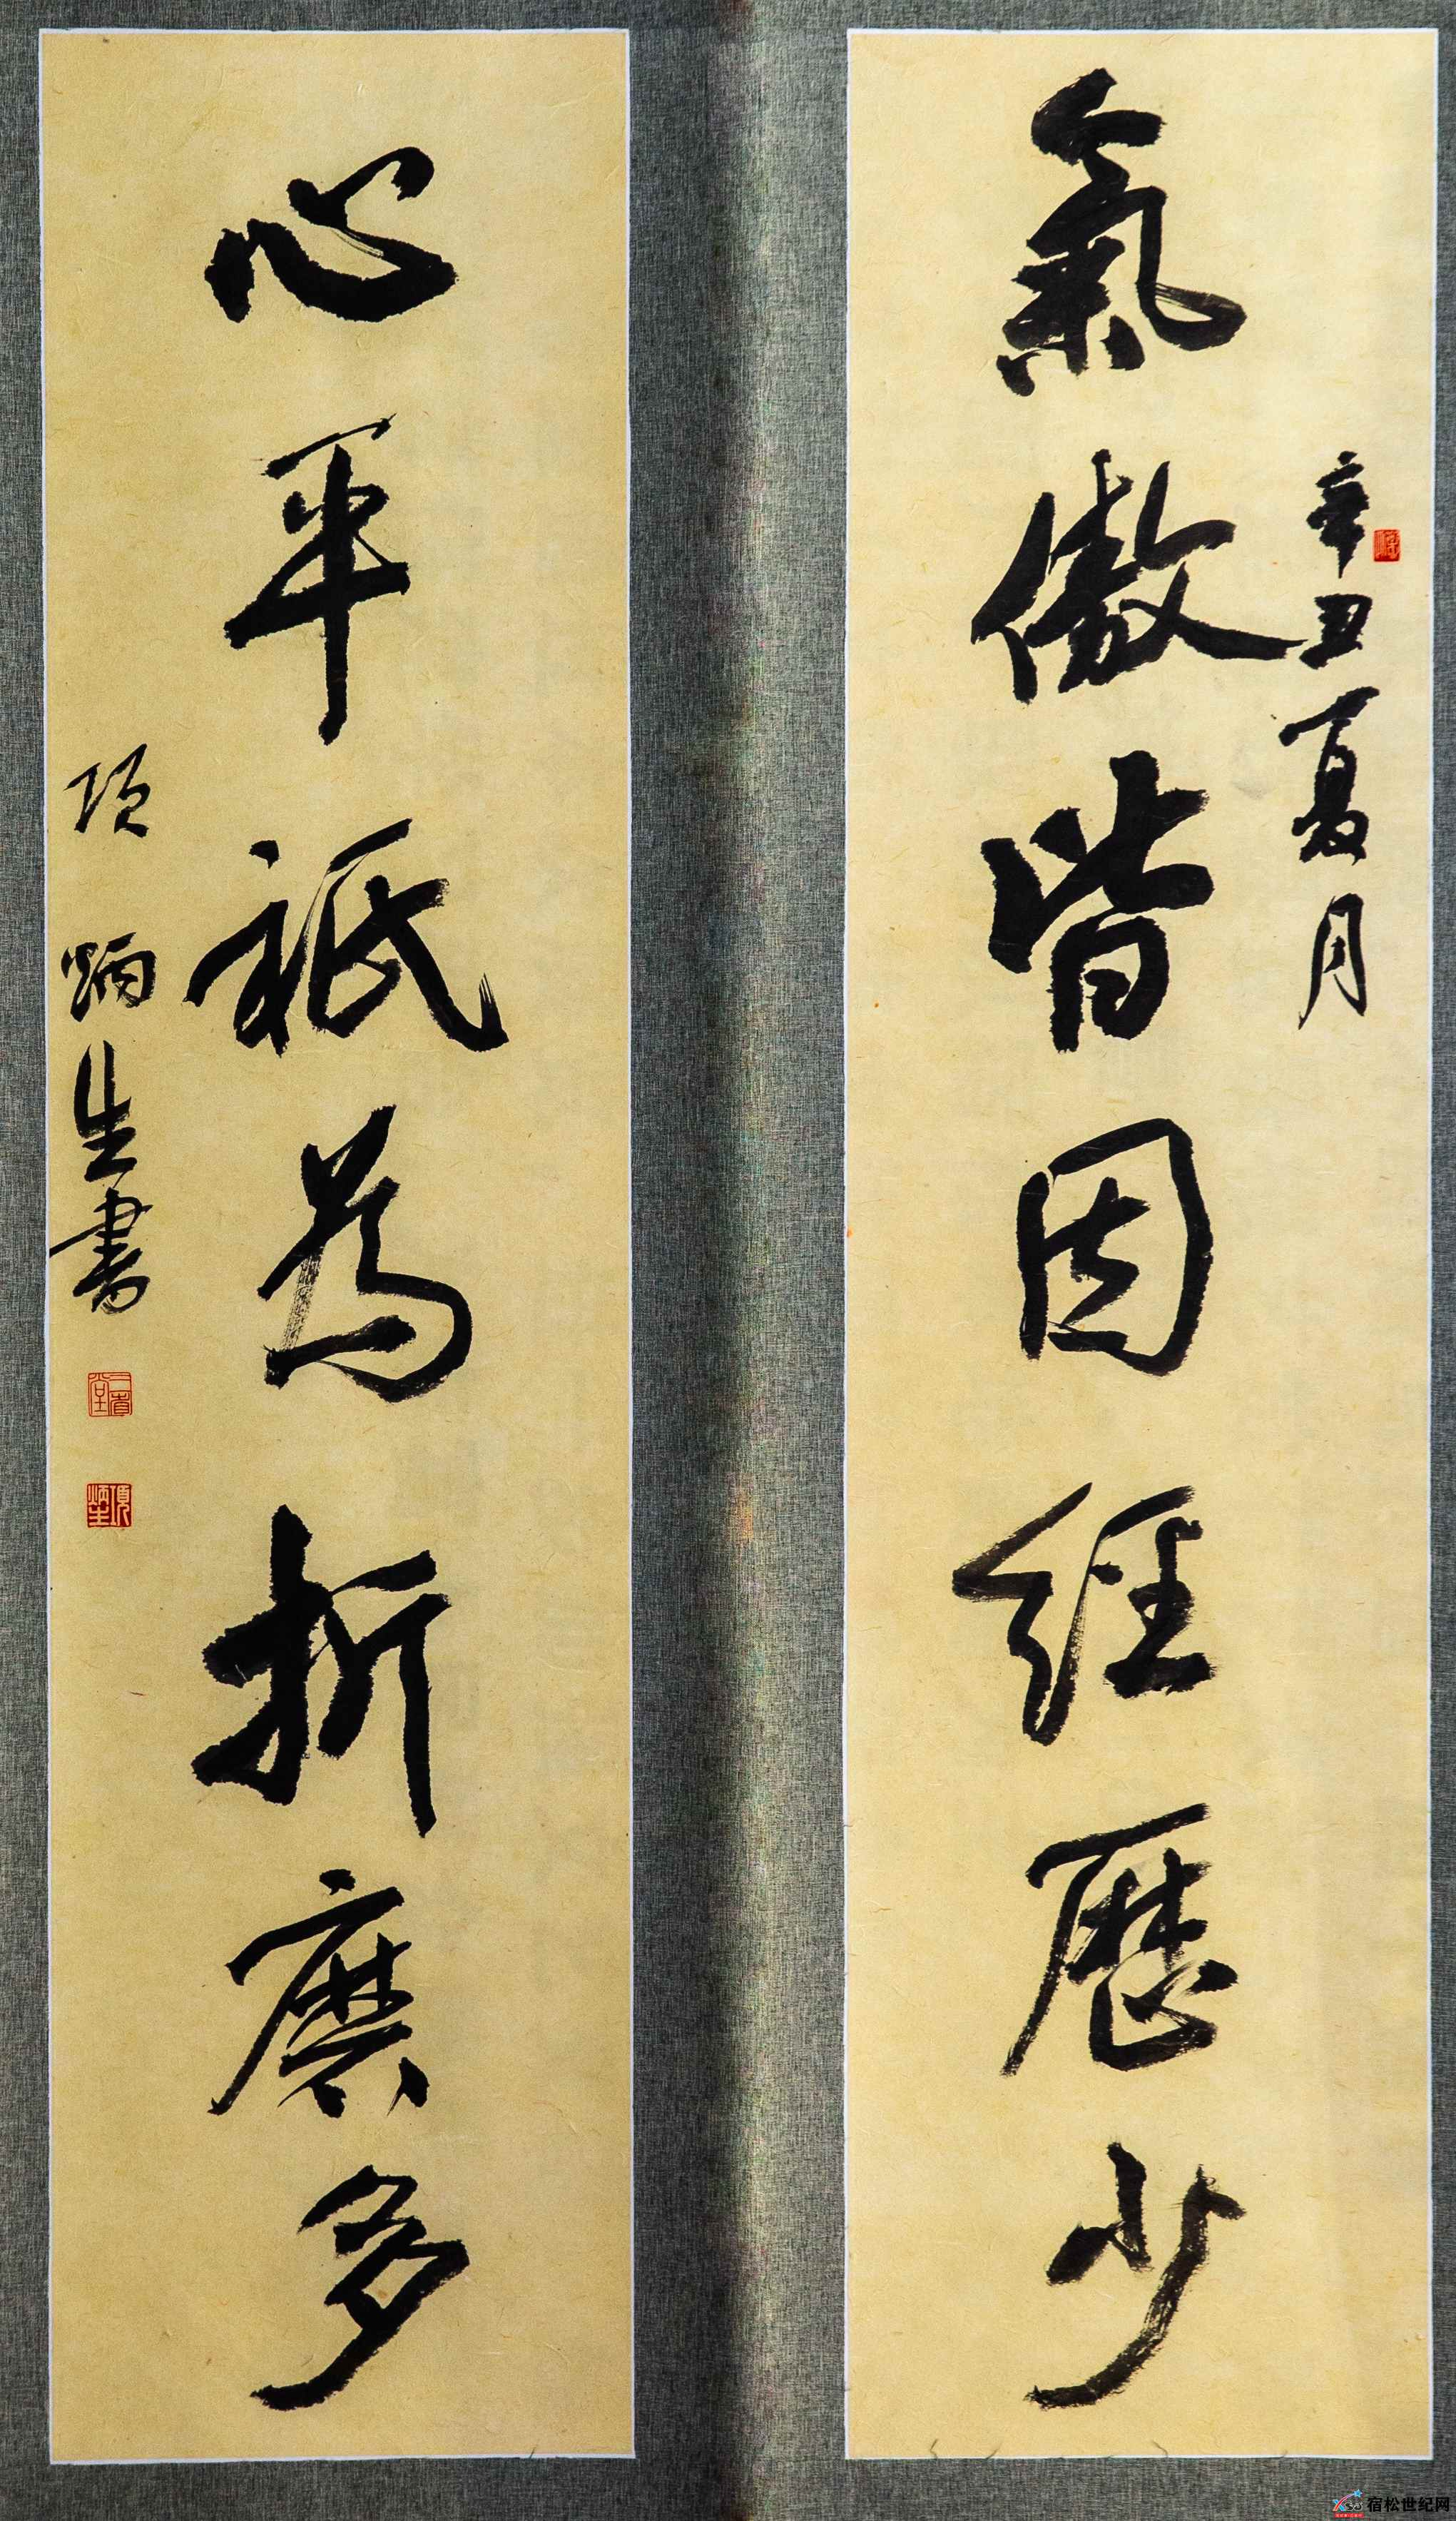 辛丑夏月
氣傲皆因經歷少
心平祇為折磨多
项炳生書
宿松世纪网